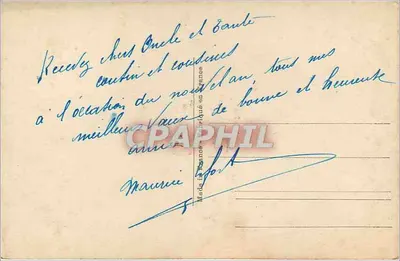 Recevez chers Oncle et Tante
cousin et cousines
à l'occasion du nouvel an, tous mes
meilleurs vœux de bonne et heureuse
année
Maurice
CPAPHIL
Made in France